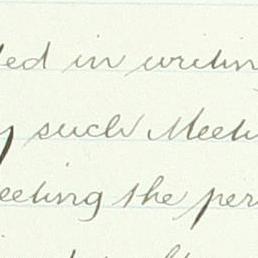 ted in writin
y such Meeti
eeting the per